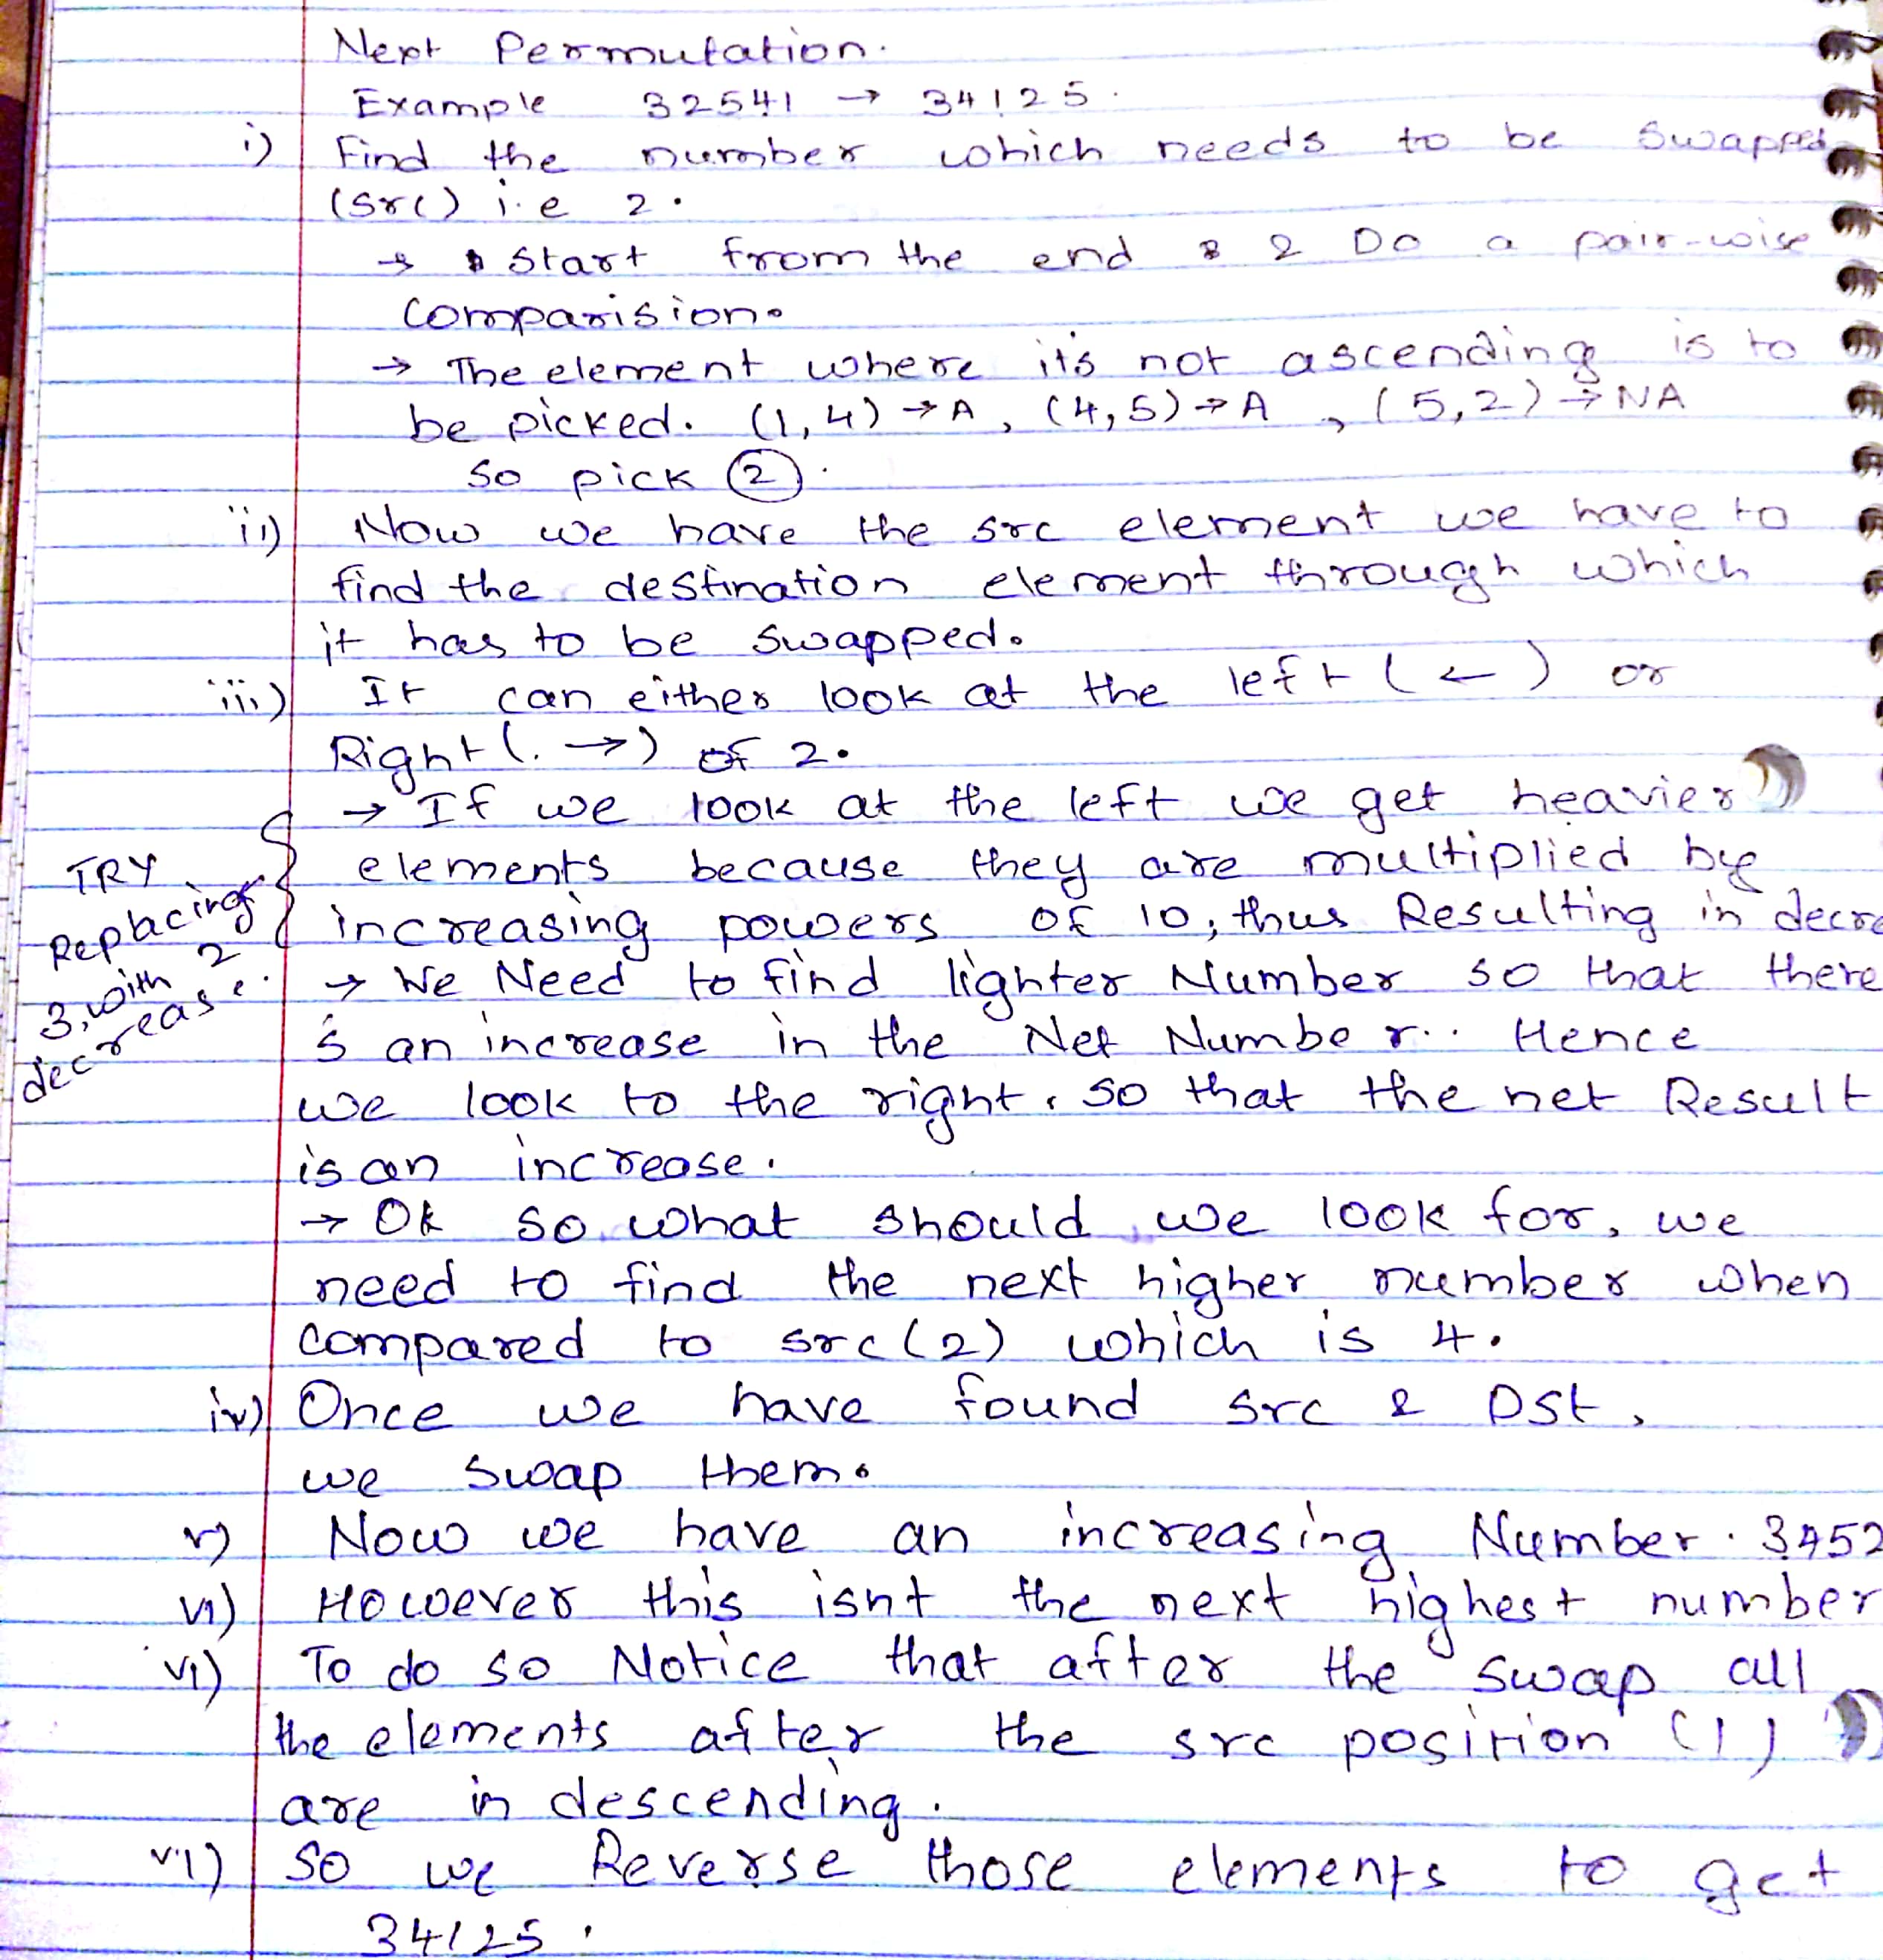 Next Permutation.
Example 32541 → 34125.
i) Find the number which needs to be swapped
(src) i.e 2.
→ Start from the end & Do a pair-wise
comparision.
→ The element where it's not ascending is to
be picked. (1,4) → A, (4,5) → A, (5,2) → NA
So pick 2.
ii) Now we have the src element we have to
find the destination element through which
it has to be swapped.
iii) It can either look at the left (←) or
Right (→) of 2.
→ If we look at the left we get heavier
elements because they are multiplied by
increasing powers of 10, thus Resulting in decre
TRY
Replacing
3, with 2
decrease.
→ We Need to find lighter Number so that there
s an increase in the Net Number.. Hence
we look to the right, so that the net Result
is an increase.
→ Ok so what should we look for, we
need to find the next higher number when
compared to src(2) which is 4.
iv) Once we have found src & Dst,
we swap them.
v) Now we have an increasing Number. 3452
vi) However this isnt the next highest number
vi) To do so Notice that after the swap all
the elements after the src position (1)
are in descending.
vi) So we Reverse those elements to get
34125.